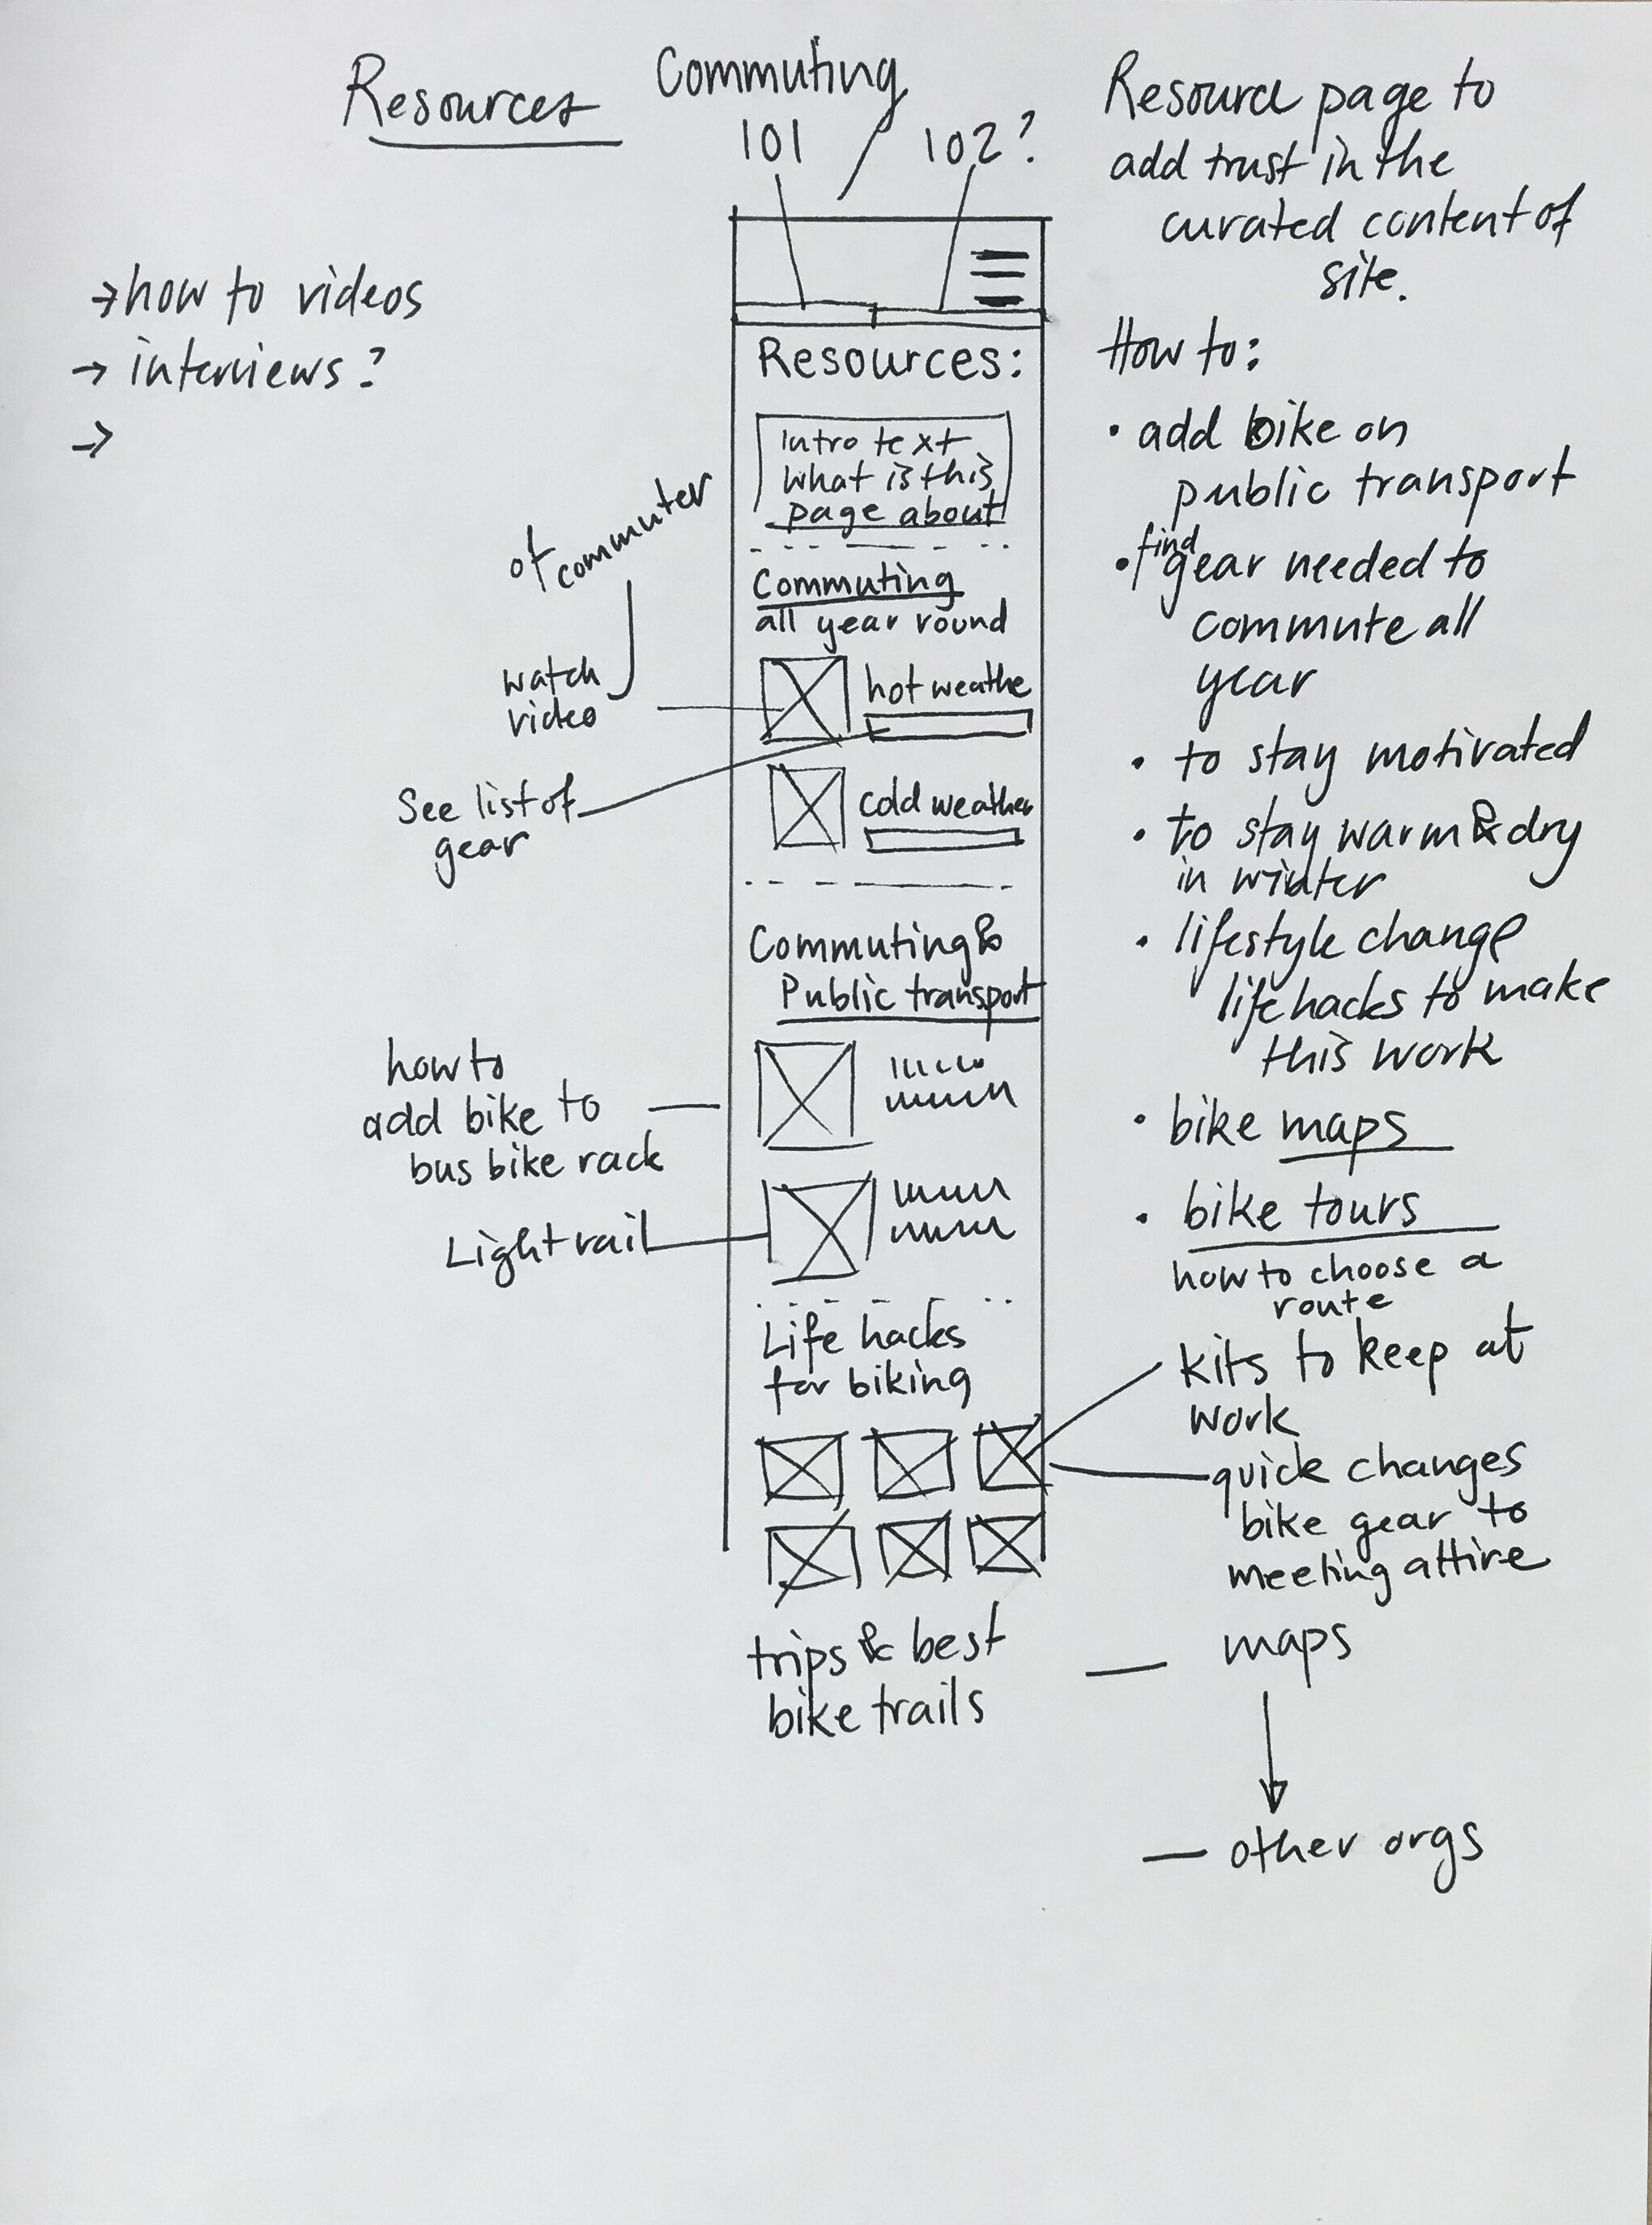 Resources
Commuting
101 / 102?
→ how to videos
→ interviews?
→
of commuter
watch
video
See list of
gear
how to
add bike to
bus bike rack
Light rail
Resources:
Intro text
What is this
page about
Commuting
all year round
hot weathe
cold weather
Commuting &
Public transport
Life hacks
for biking
trips & best
bike trails
Resource page to
add trust in the
curated content of
site.
How to:
• add bike on
public transport
• find gear needed to
commute all
year
• to stay motivated
• to stay warm & dry
in winter
• lifestyle change
life hacks to make
this work
• bike maps
• bike tours
how to choose a
route
kits to keep at
work
quick changes
bike gear to
meeting attire
— maps
— other orgs